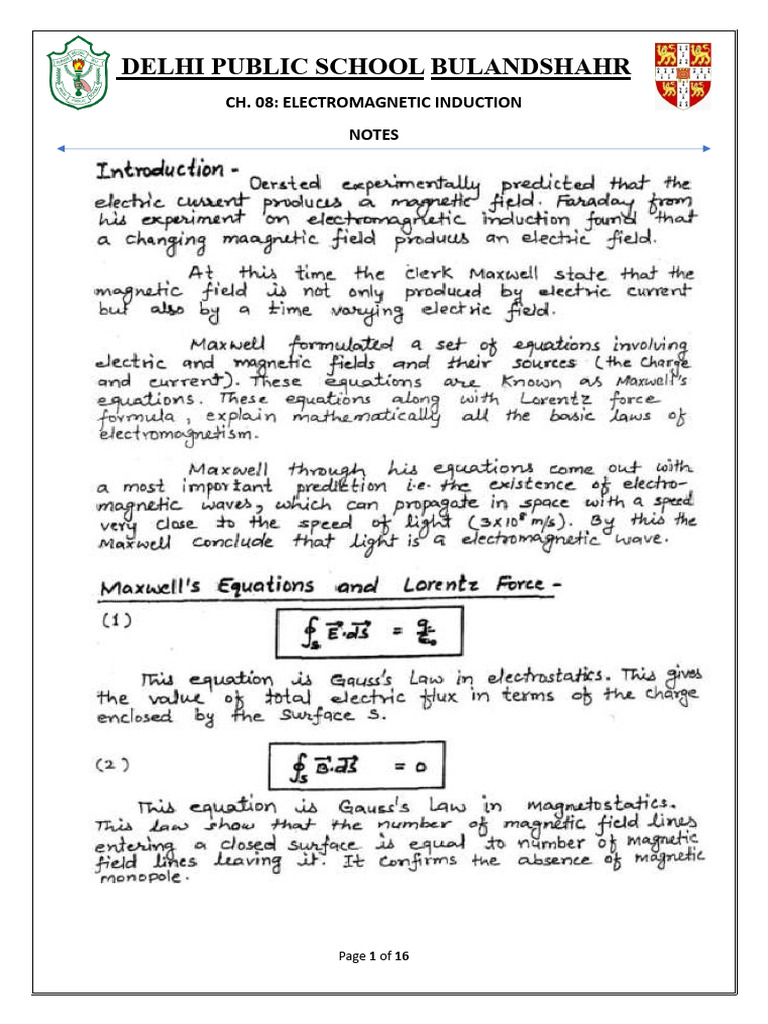 DELHI PUBLIC SCHOOL BULANDSHAHR
CH. 08: ELECTROMAGNETIC INDUCTION
NOTES
Introduction -
Oersted experimentally predicted that the
electric current produces a magnetic field. Faraday from
his experiment on electromagnetic induction found that
a changing maagnetic field produces an electric field.
At this time the clerk Maxwell state that the
magnetic field is not only produced by electric current
but also by a time varying electric field.
Maxwell formulated a set of equations involving
electric and magnetic fields and their sources (the Charge
and current). These equations are known as Maxwell's
equations. These equations along with Lorentz force
formula, explain mathematically all the basic laws of
electromagnetism.
Maxwell through his equations come out with
a most important prediction i.e. the existence of electro-
magnetic waves, which can propagate in space with a speed
very close to the speed of light (3×10⁸ m/s). By this the
Maxwell conclude that light is a electromagnetic wave.
Maxwell's Equations and Lorentz Force -
(1)
∮ₛ E⃗·dS⃗ = q/ε₀
This equation is Gauss's Law in electrostatics. This gives
the value of total electric flux in terms of the charge
enclosed by the surface S.
(2)
∮ₛ B⃗·dS⃗ = 0
This equation is Gauss's Law in magnetostatics.
This law show that the number of magnetic field lines
entering a closed surface is equal to number of magnetic
field lines leaving it. It confirms the absence of magnetic
monopole.
Page 1 of 16